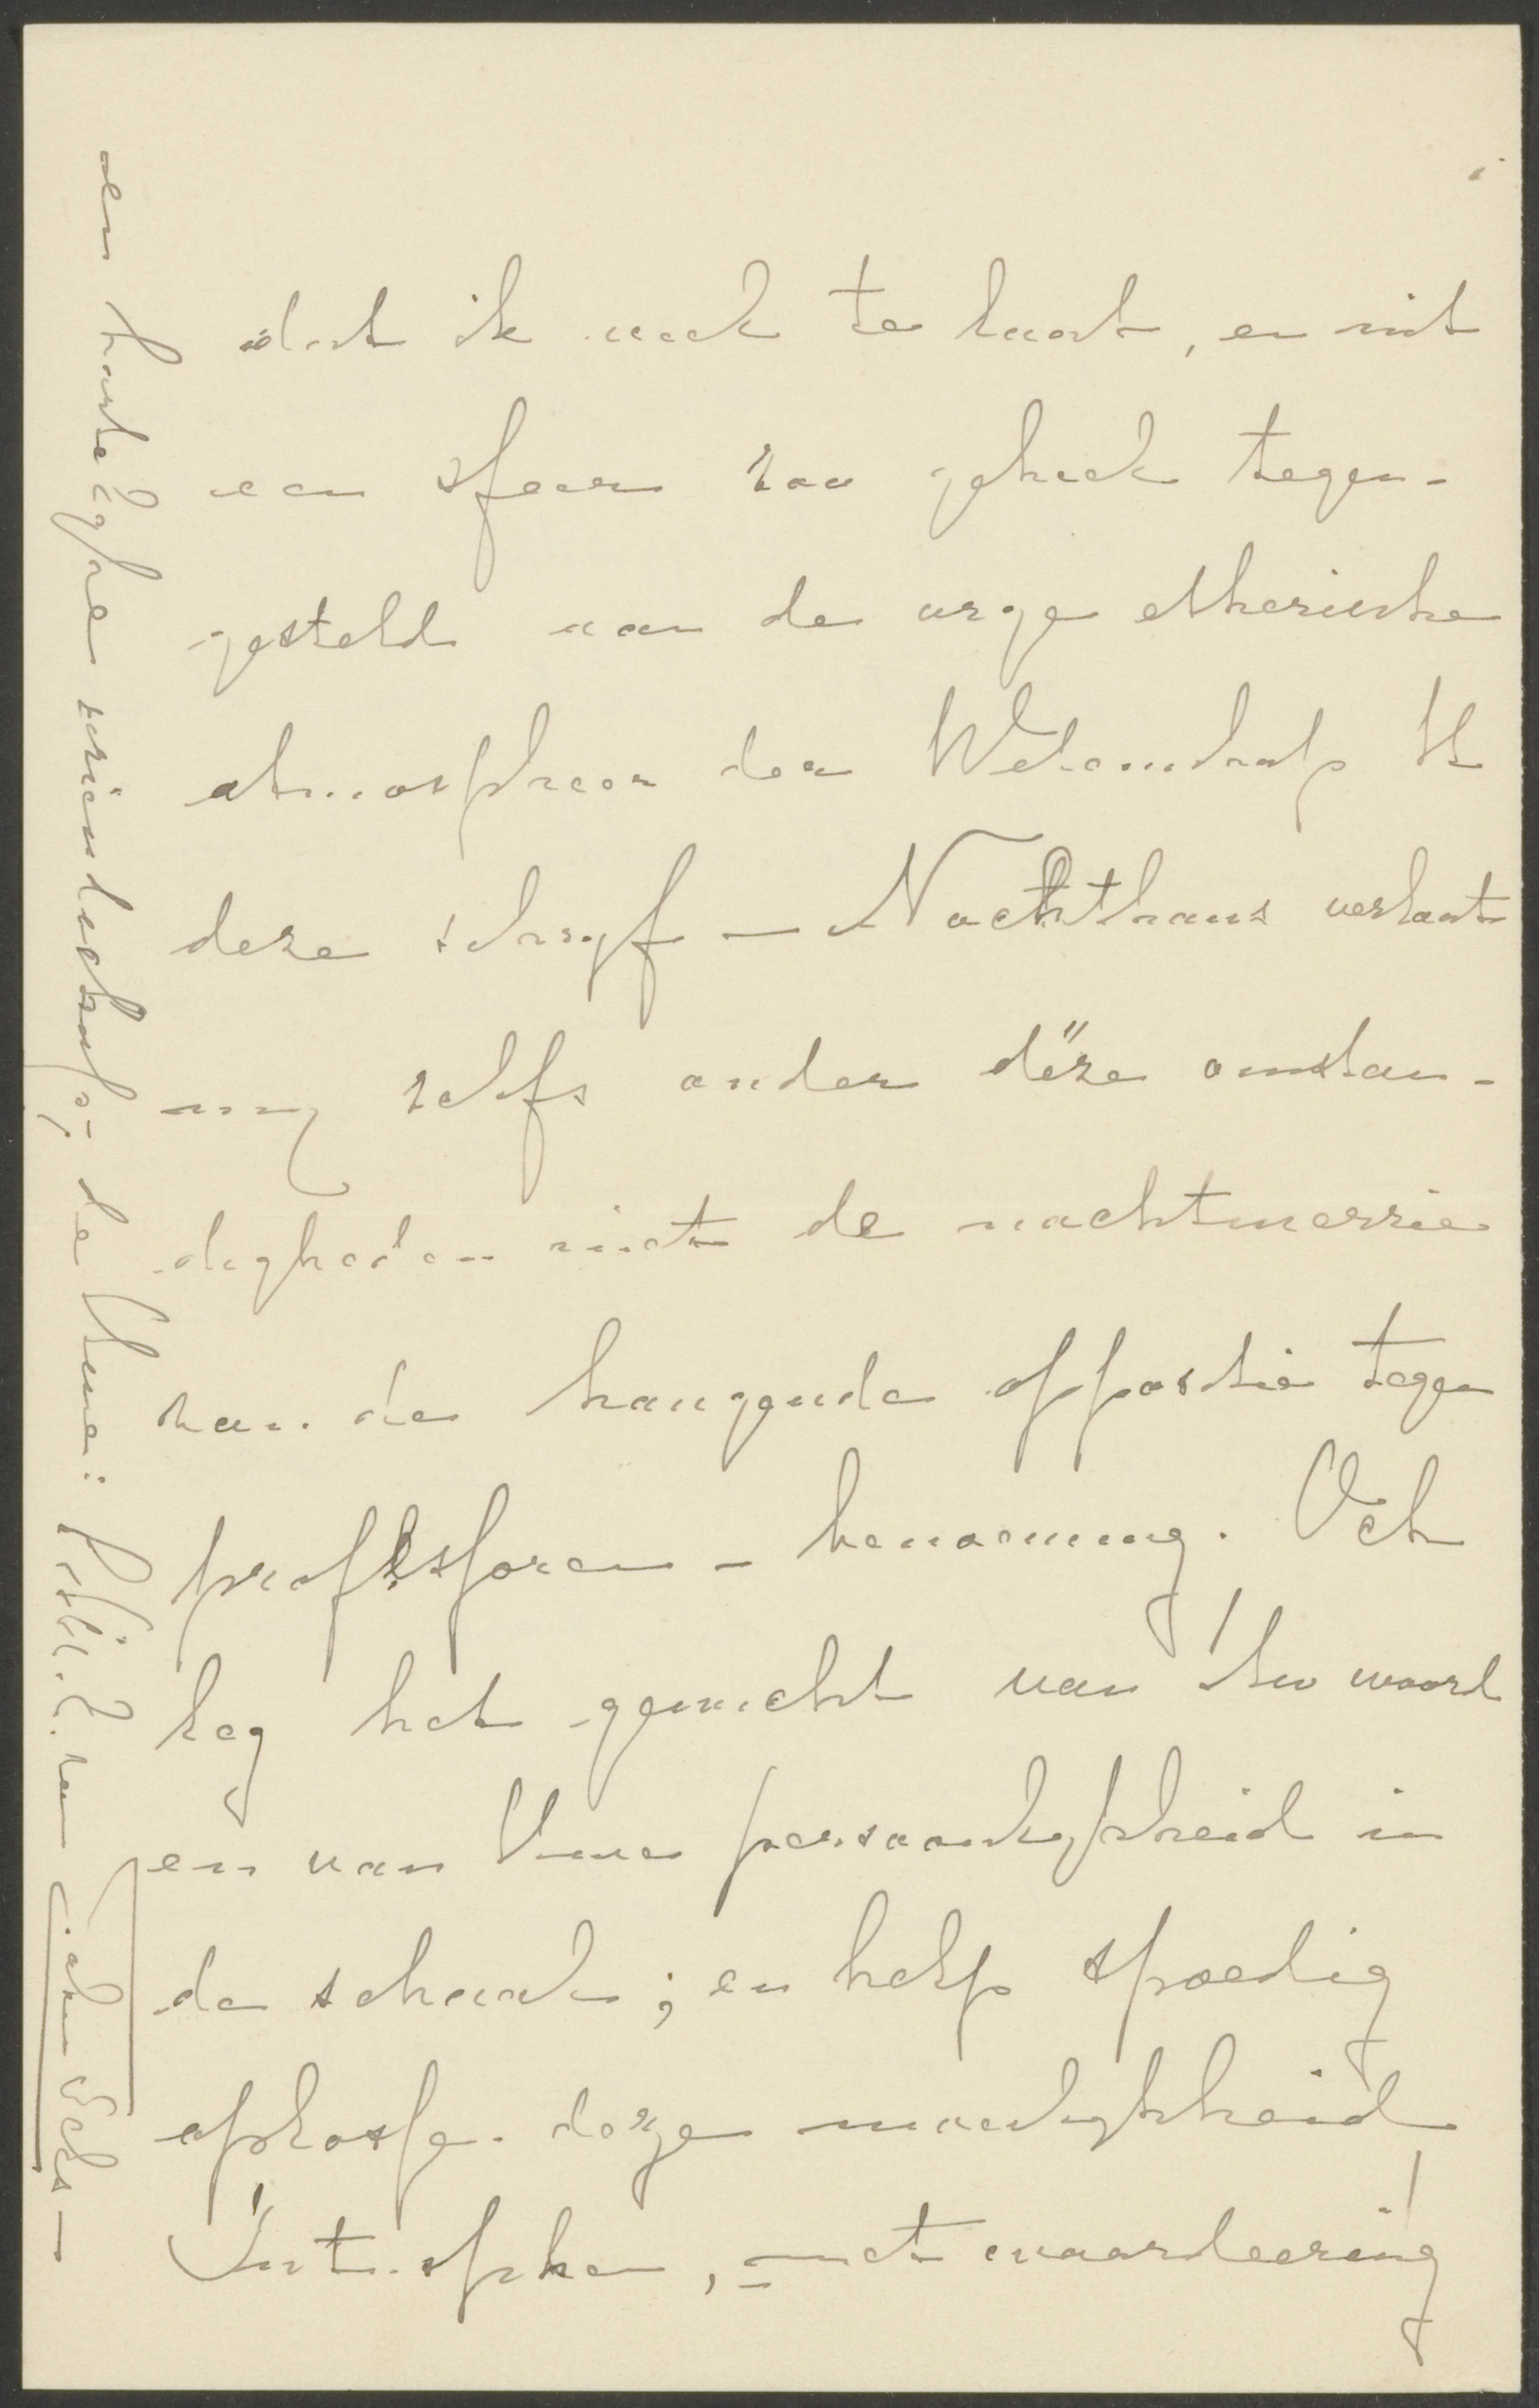 dat ik veel te kort, en uit
een sfeer zoo geheel tegen-
gesteld aan de etherische
atmospheer der Wetenschap U
deze schryf – Nochthans verlaat
my zelfs onder déze omstan-
digheden niet de nachtmerrie
van de hangende oppositie tegen
professoren-benoeming. Och
leg het gewicht van Uw woord
en van Uwe persoonlykheid in
de schaal; en help spoedig
oplossen deze moeilykheid!
Int. , met waardeering
en hartelyke vriendschap; de Uwe: